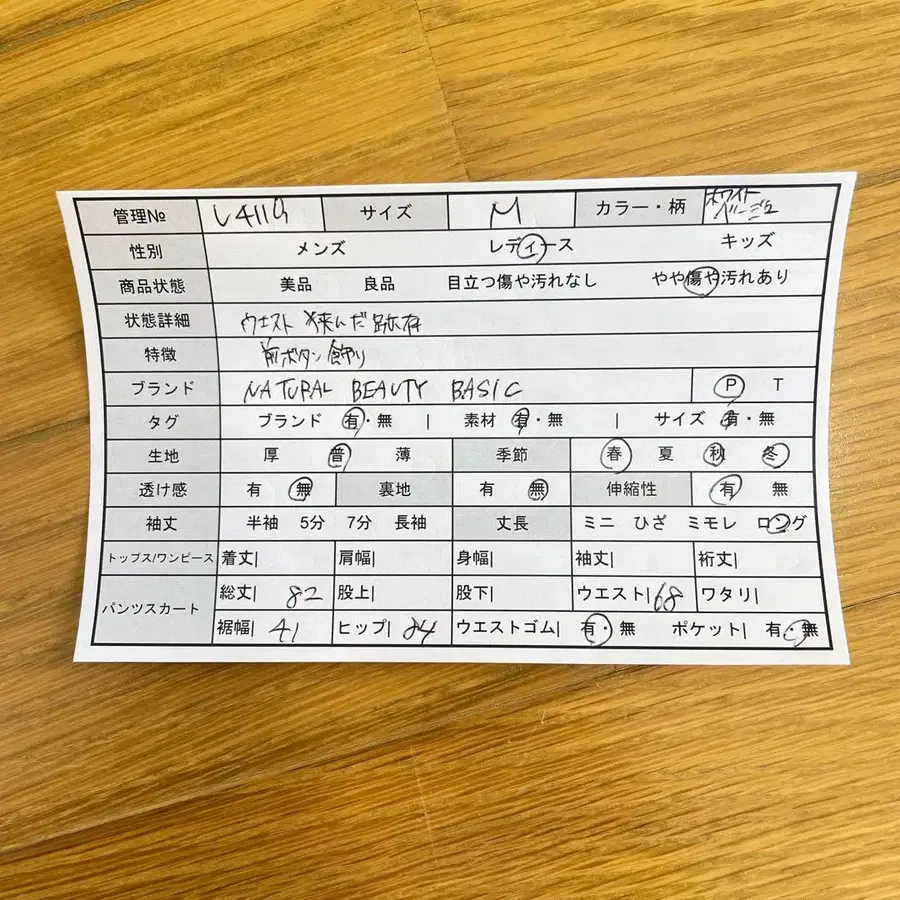 管理№ L4119 サイズ M カラー・柄 ホワイト ベージュ
性別 メンズ レディース キッズ
商品状態 美品 良品 目立つ傷や汚れなし やや傷や汚れあり
状態詳細 ウエスト 挟んだ跡有
特徴 前ボタン飾り
ブランド NATURAL BEAUTY BASIC P T
タグ ブランド 有・無 | 素材 有・無 | サイズ 有・無
生地 厚 普 薄 季節 春 夏 秋 冬
透け感 有 無 裏地 有 無 伸縮性 有 無
袖丈 半袖 5分 7分 長袖 丈長 ミニ ひざ ミモレ ロング
トップス/ワンピース 着丈| 肩幅| 身幅| 袖丈| 裄丈|
パンツスカート 総丈| 82 股上| 股下| ウエスト| 68 ワタリ|
裾幅| 41 ヒップ| 84 ウエストゴム| 有・無 ポケット| 有・無